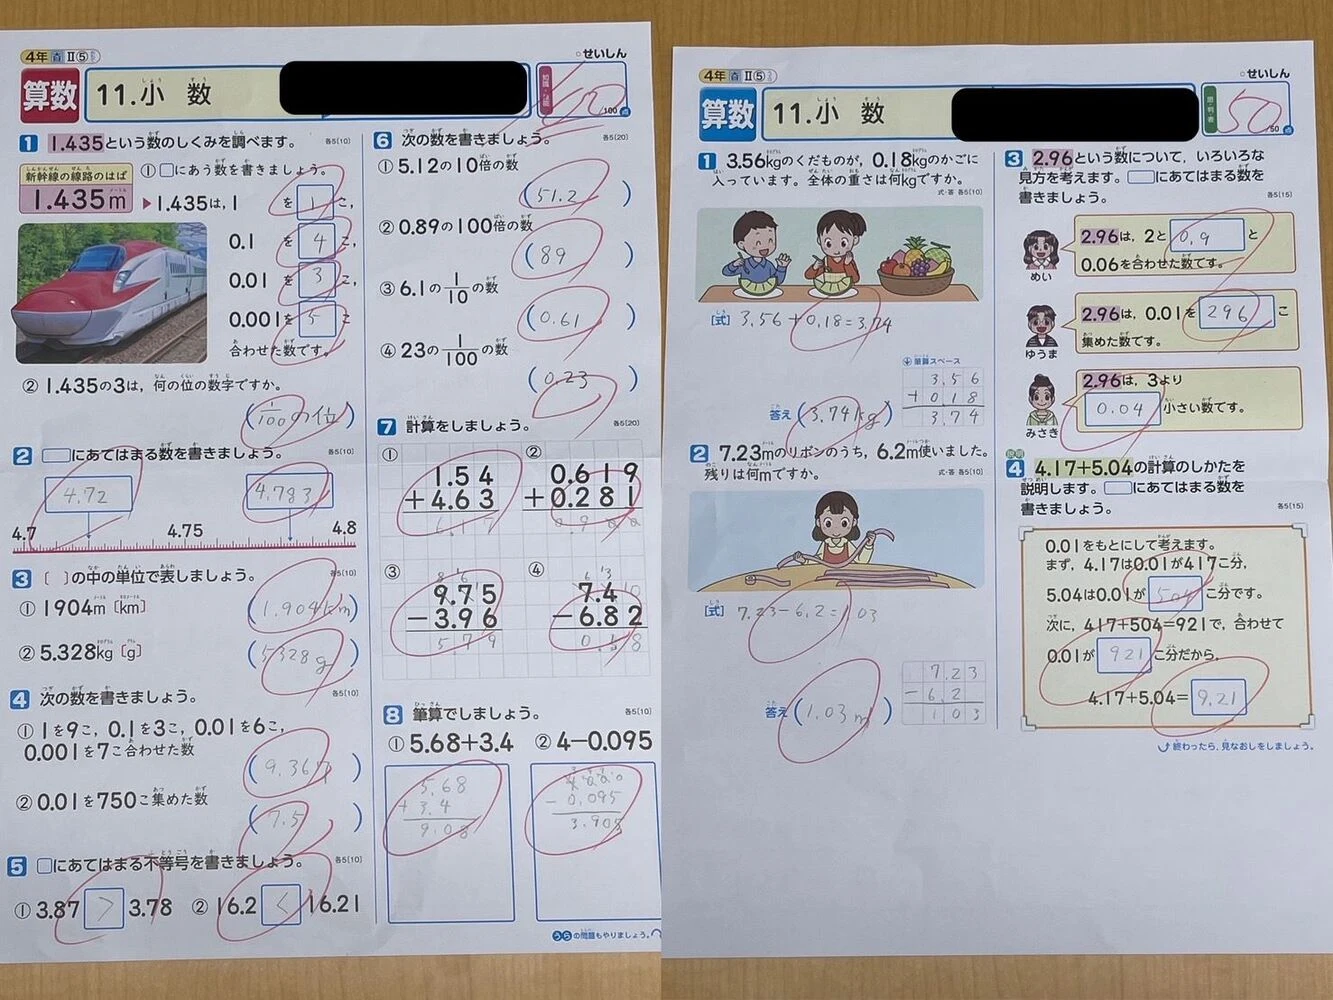 4年 Ⅱ⑤
せいしん
算数
11.小数
100点
1 1.435という数のしくみを調べます。 各5(10)
新幹線の線路のはば
1.435m
① □にあう数を書きましょう。
▶1.435は，1を 1 こ，
0.1を 4 こ，
0.01を 3 こ，
0.001を 5 こ
合わせた数です。
② 1.435の3は，何の位の数字ですか。
(1/100の位)
2 □にあてはまる数を書きましょう。 各5(10)
4.72 4.793
4.7 4.75 4.8
3 〔 〕の中の単位で表しましょう。 各5(10)
① 1904m〔km〕
(1.904km)
② 5.328kg〔g〕
(5328g)
4 次の数を書きましょう。 各5(10)
① 1を9こ，0.1を3こ，0.01を6こ，
0.001を7こ合わせた数
(9.367)
② 0.01を750こ集めた数
(7.5)
5 □にあてはまる不等号を書きましょう。 各5(10)
① 3.87 > 3.78 ② 16.2 < 16.21
6 次の数を書きましょう。 各5(20)
① 5.12の10倍の数
(51.2)
② 0.89の100倍の数
(89)
③ 6.1の1/10の数
(0.61)
④ 23の1/100の数
(0.23)
7 計算をしましょう。 各5(20)
① ②
1.54 0.619
+4.63 +0.281
6.17 0.900
③ ④
9.75 7.4
-3.96 -6.82
5 7 9 0.58
8 筆算でしましょう。 各5(10)
① 5.68+3.4 ② 4-0.095
5.68
+3.4
9.08
-0.095
3.905
うらの問題もやりましょう。
4年 Ⅱ⑤
せいしん
算数
11.小数
50
50点
1 3.56kgのくだものが，0.18kgのかごに
入っています。全体の重さは何kgですか。
式・答 各5(10)
[式] 3.56+0.18=3.74
筆算スペース
3.56
+018
3.74
答え (3.74kg)
2 7.23mのリボンのうち，6.2m使いました。
残りは何mですか。 式・答 各5(10)
[式] 7.23-6.2=1.03
7.23
-6.2
103
答え (1.03m)
3 2.96という数について，いろいろな
見方を考えます。□にあてはまる数を
書きましょう。 各5(15)
めい
2.96は，2と 0.9 と
0.06を合わせた数です。
ゆうま
2.96は，0.01を 296 こ
集めた数です。
みさき
2.96は，3より
0.04 小さい数です。
説明
4 4.17+5.04の計算のしかたを
説明します。□にあてはまる数を
書きましょう。 各5(15)
0.01をもとにして考えます。
まず，4.17は0.01が417こ分，
5.04は0.01が 504 こ分です。
次に，417+504=921で，合わせて
0.01が 921 こ分だから，
4.17+5.04= 9.21
終わったら，見なおしをしましょう。